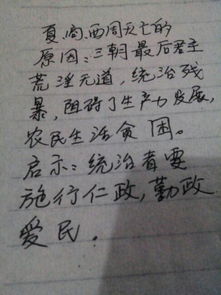 夏、商、西周灭亡的
原因：三朝最后君主
荒淫无道，统治残
暴，阻碍了生产力发展，
农民生活贫困。
启示：统治者要
施行仁政，勤政
爱民．